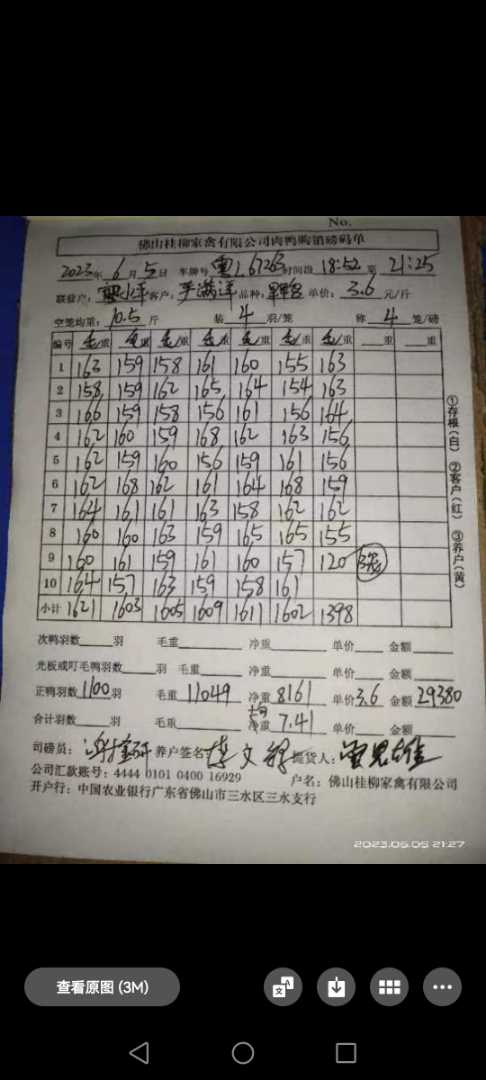 No.
佛山桂柳家禽有限公司肉鸭购销磅码单
2023年 6月 5日 车牌号 粤L67263 时间段 18:52 至 21:25
联营户: 小平 客户: 严满洋 品种: 单价: 3.6 元/斤
空笼均重: 10.5 斤 装 4 羽/笼 称 4 笼/磅
编号 毛重 毛重 毛重 毛重 毛重 毛重 毛重 重 重
1 163 159 158 161 160 155 163
2 158 159 162 165 164 154 163
3 166 159 158 156 161 156 164
4 162 160 159 168 162 163 156
5 162 159 160 156 159 161 156
6 162 168 162 161 164 168 159
7 164 161 161 163 158 162 162
8 160 160 163 159 165 165 155
9 160 161 159 161 160 157 120 3笼
10 164 157 163 159 158 161
小计 1621 1603 1605 1609 1611 1602 1398
①存根(白) ②客户(红) ③养户(黄)
次鸭羽数 羽 毛重 净重 单价 金额
光板或叮毛鸭羽数 羽 毛重 净重 单价 金额
正鸭羽数 1100 羽 毛重 11049 净重 8161 单价 3.6 金额 29380
合计羽数 羽 毛重 均重 7.41 单价 金额
司磅员: 养户签名: 李文 提货人:
公司汇款账号: 4444 0101 0400 16929 户名: 佛山桂柳家禽有限公司
开户行: 中国农业银行广东省佛山市三水区三水支行
2023.06.05 21:27
查看原图 (3M)